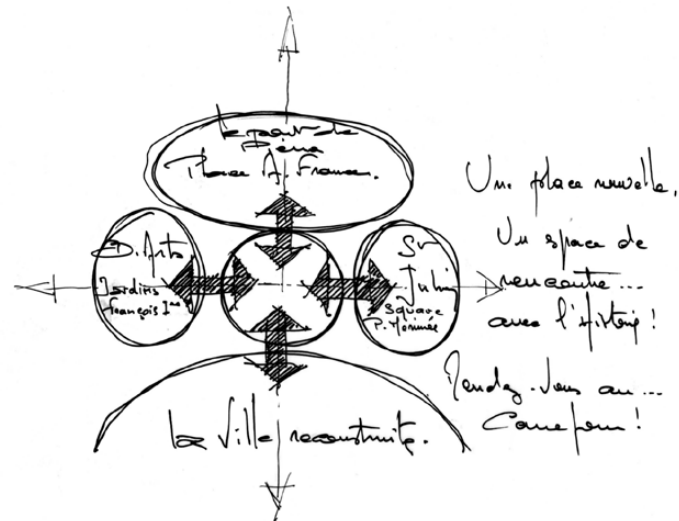 Le pont de
Pierre
Place A. France.
B. Arts
Jardins
François Ier
St
Julien
Square
P. Mérimée
La Ville reconstruite.
Une place nouvelle,
Un espace de
rencontre...
avec l'histoire!
Rendez-vous au...
Carrefour!